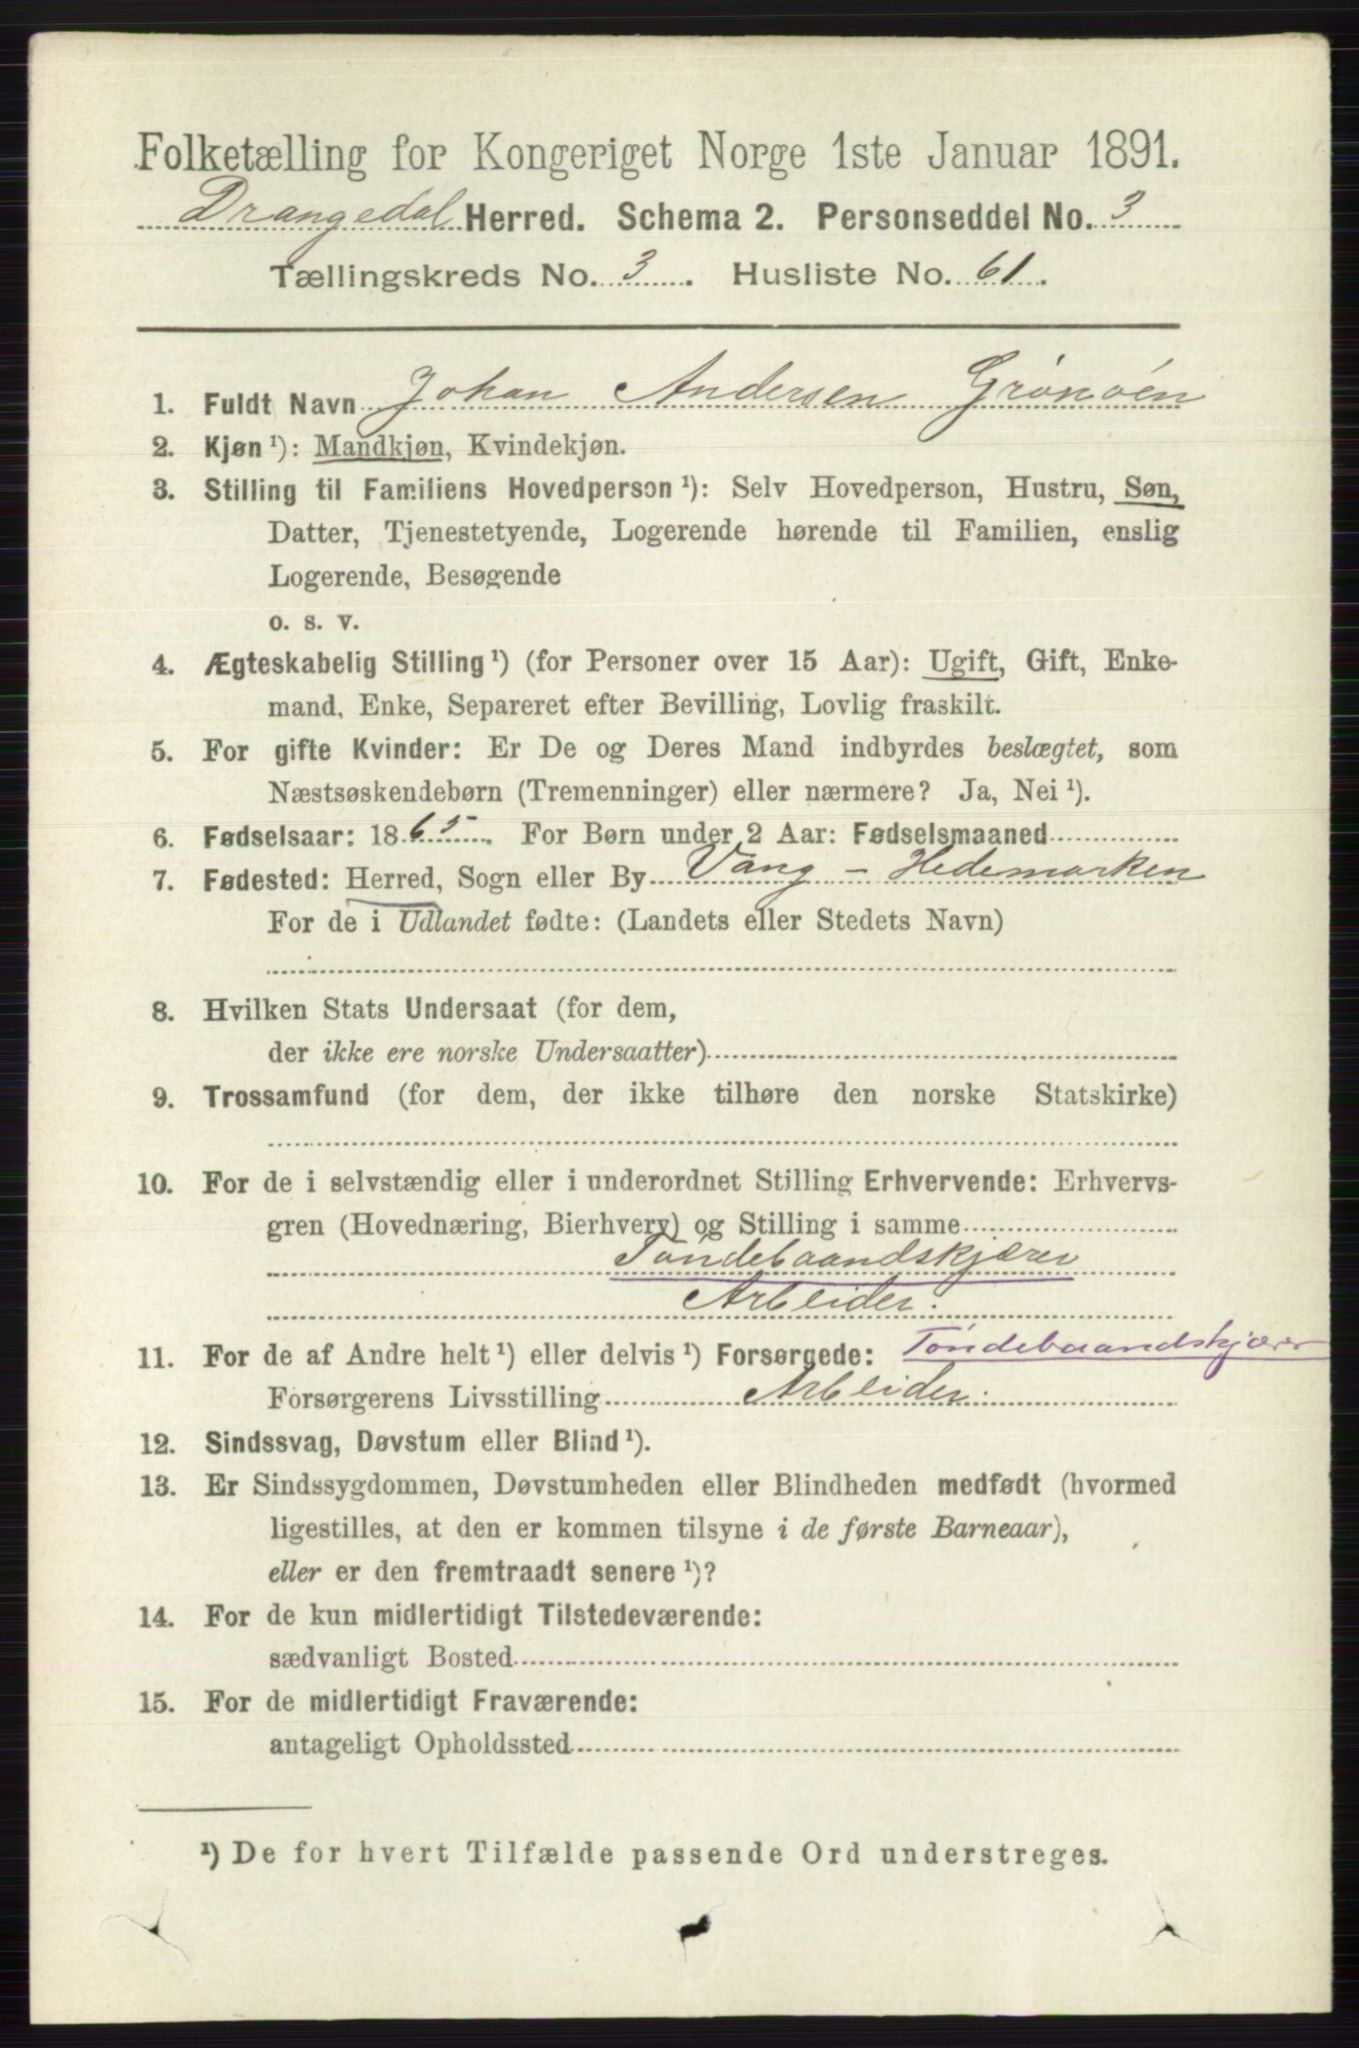 Folketælling for Kongeriget Norge 1ste Januar 1891.
Drangedal Herred. Schema 2. Personseddel No. 3
Tællingskreds No. 3. Husliste No. 61.
1. Fuldt Navn Johan Andersen Grönöen
2. Kjøn¹): Mandkjøn, Kvindekjøn.
3. Stilling til Familiens Hovedperson¹): Selv Hovedperson, Hustru, Søn,
Datter, Tjenestetyende, Logerende hørende til Familien, enslig
Logerende, Besøgende
o. s. v.
4. Ægteskabelig Stilling¹) (for Personer over 15 Aar): Ugift, Gift, Enke-
mand, Enke, Separeret efter Bevilling, Lovlig fraskilt.
5. For gifte Kvinder: Er De og Deres Mand indbyrdes beslægtet, som
Næstsøskendebørn (Tremenninger) eller nærmere? Ja, Nei¹).
6. Fødselsaar: 1865. For Børn under 2 Aar: Fødselsmaaned
7. Fødested: Herred, Sogn eller By Vang - Hedemarken
For de i Udlandet fødte: (Landets eller Stedets Navn)
8. Hvilken Stats Undersaat (for dem,
der ikke ere norske Undersaatter)
9. Trossamfund (for dem, der ikke tilhøre den norske Statskirke)
10. For de i selvstændig eller i underordnet Stilling Erhvervende: Erhvervs-
gren (Hovednæring, Bierhverv) og Stilling i samme
Töndebaandskjærer
Arbeider.
11. For de af Andre helt¹) eller delvis¹) Forsørgede: Töndebaandskjærer
Forsørgerens Livsstilling Arbeider.
12. Sindssvag, Døvstum eller Blind¹).
13. Er Sindssygdommen, Døvstumheden eller Blindheden medfødt (hvormed
ligestilles, at den er kommen tilsyne i de første Barneaar),
eller er den fremtraadt senere¹)?
14. For de kun midlertidigt Tilstedeværende:
sædvanligt Bosted
15. For de midlertidigt Fraværende:
antageligt Opholdssted
¹) De for hvert Tilfælde passende Ord understreges.